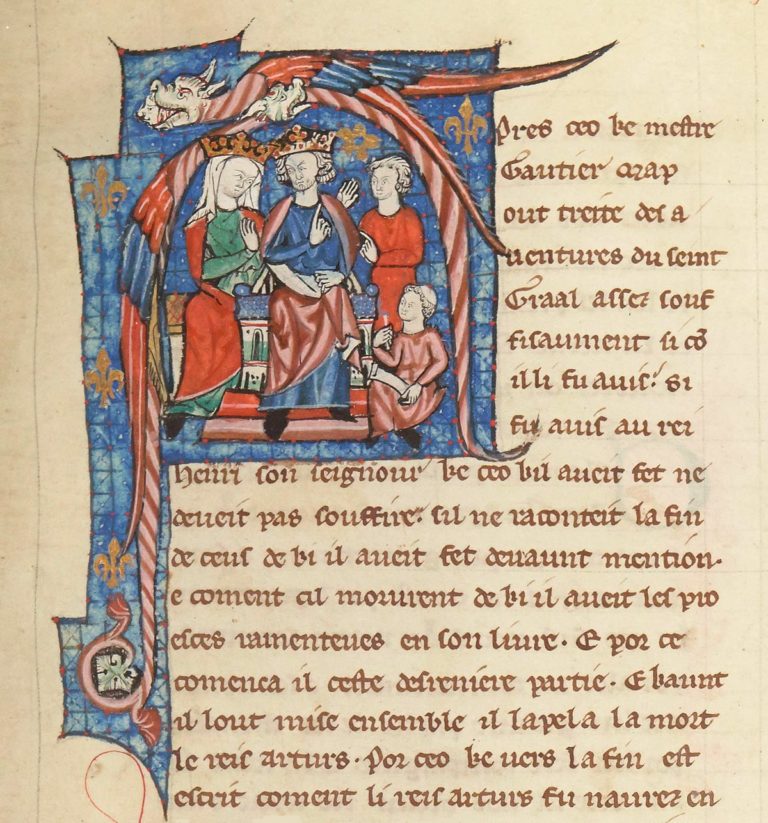 Pres ceo ke mestre
Gautier Map
out treite des a
uentures du seint
Graal assez souf
fisaument si cō
il li fu auis. Si
fu auis au rei
henri son seignour ke ceo kil aueit fet ne
deueit pas souffire. sil ne raconteit la fin
de ceus de ki il aueit fet deuaunt mention.
e coment cil morurent de ki il aueit les pro
esces ramenteues en son liure. E por ce
comenca il ceste desreniere partie. E kaunt
il lout mise ensemble il lapela la mort
le reis arturs. Por ceo ke uers la fin est
escrit coment li reis arturs fu naurez en